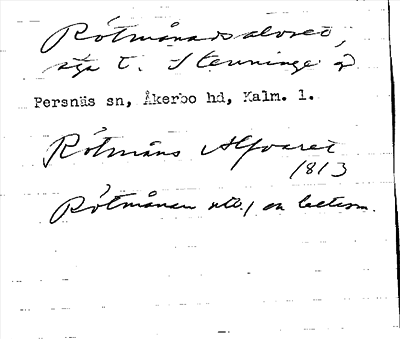 Rötmånadsalvret,
äga t. Stenninge i
Persnäs sn, Åkerbo hd, Kalm. l.
Rötmåns Alfvaret
1813
Rötmånen utt. / en betesm.